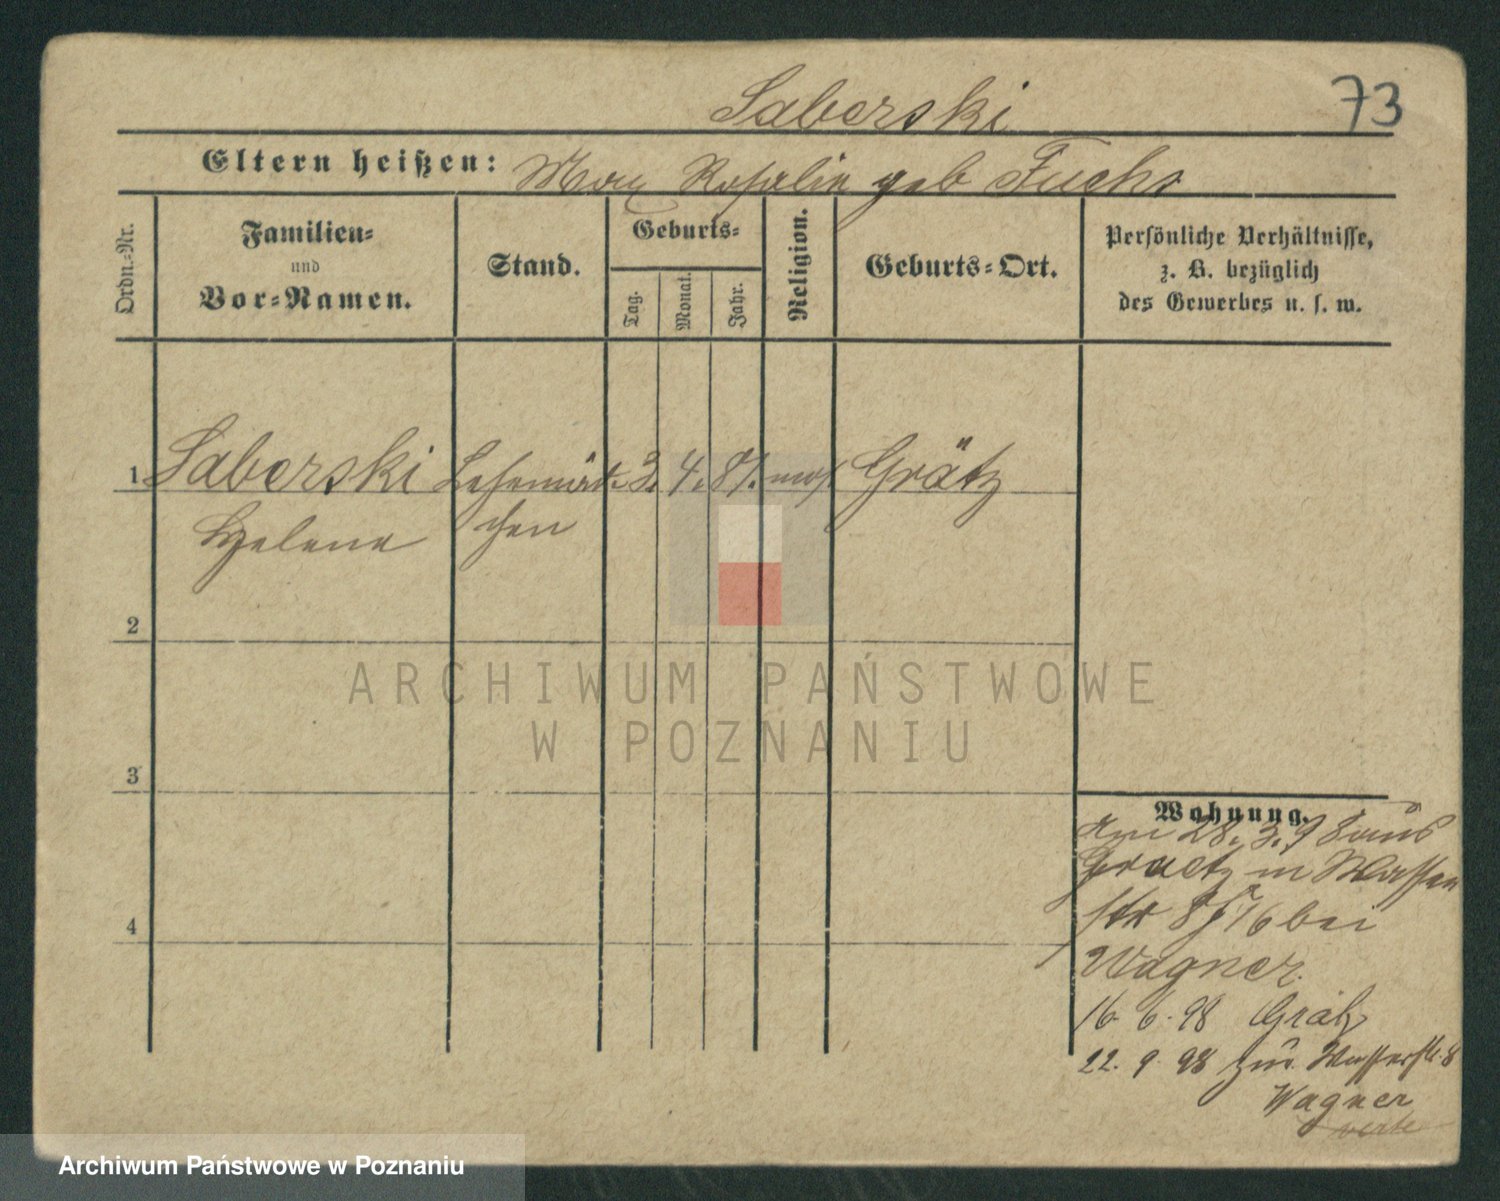 Saberski
73
Eltern heißen: Max Rosalie geb Fuchs
Ordn.-Nr.
Familien-
und
Vor-Namen.
Stand.
Geburts-
Tag.
Monat.
Jahr.
Religion.
Geburts-Ort.
Persönliche Verhältnisse,
z. B. bezüglich
des Gewerbes u. s. w.
1 Saberski Lehrmäd- 3. 4. 81. mos. Grätz
Helene chen
2
3
4
Wohnung.
Am 28. 3. 98 aus
Graetz in Wasser
str 8/ 16 bei
Wagner.
16 6. 98 Grätz
22. 9. 98 zur. Wasserstr. 8
Wagner
verte
ARCHIWUM PAŃSTWOWE
W POZNANIU
Archiwum Państwowe w Poznaniu